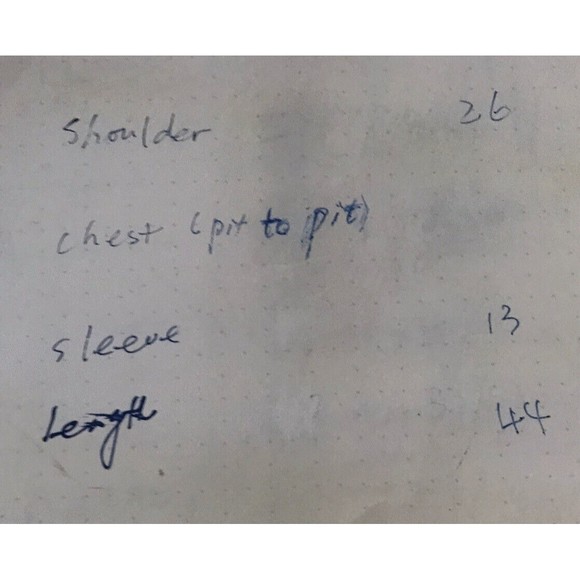 shoulder 26
chest (pit to pit)
sleeve 13
Length 44